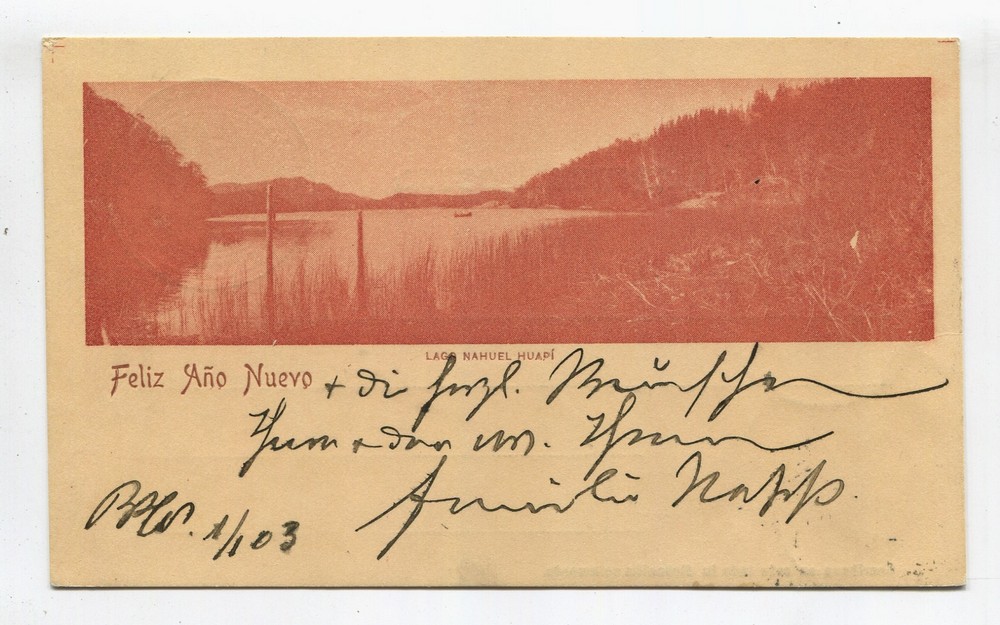 LAGO NAHUEL HUAPÍ
Feliz Año Nuevo + die herzl. Wünsche
Ihnen + den w. Ihren
Familie
1/1 03